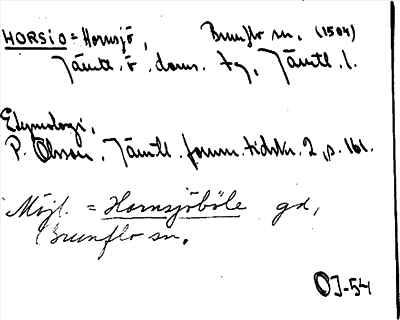 HORSIO = Hornsjö, Brunflo sn. (1504)
Jämtl. o. doms. tg, Jämtl. l.
Etymologi,
P. Olsson, Jämtl. fornm. tidskr. 2, s. 161.
Möjl. = Hornsjöböle gd,
Brunflo sn.
OJ-54